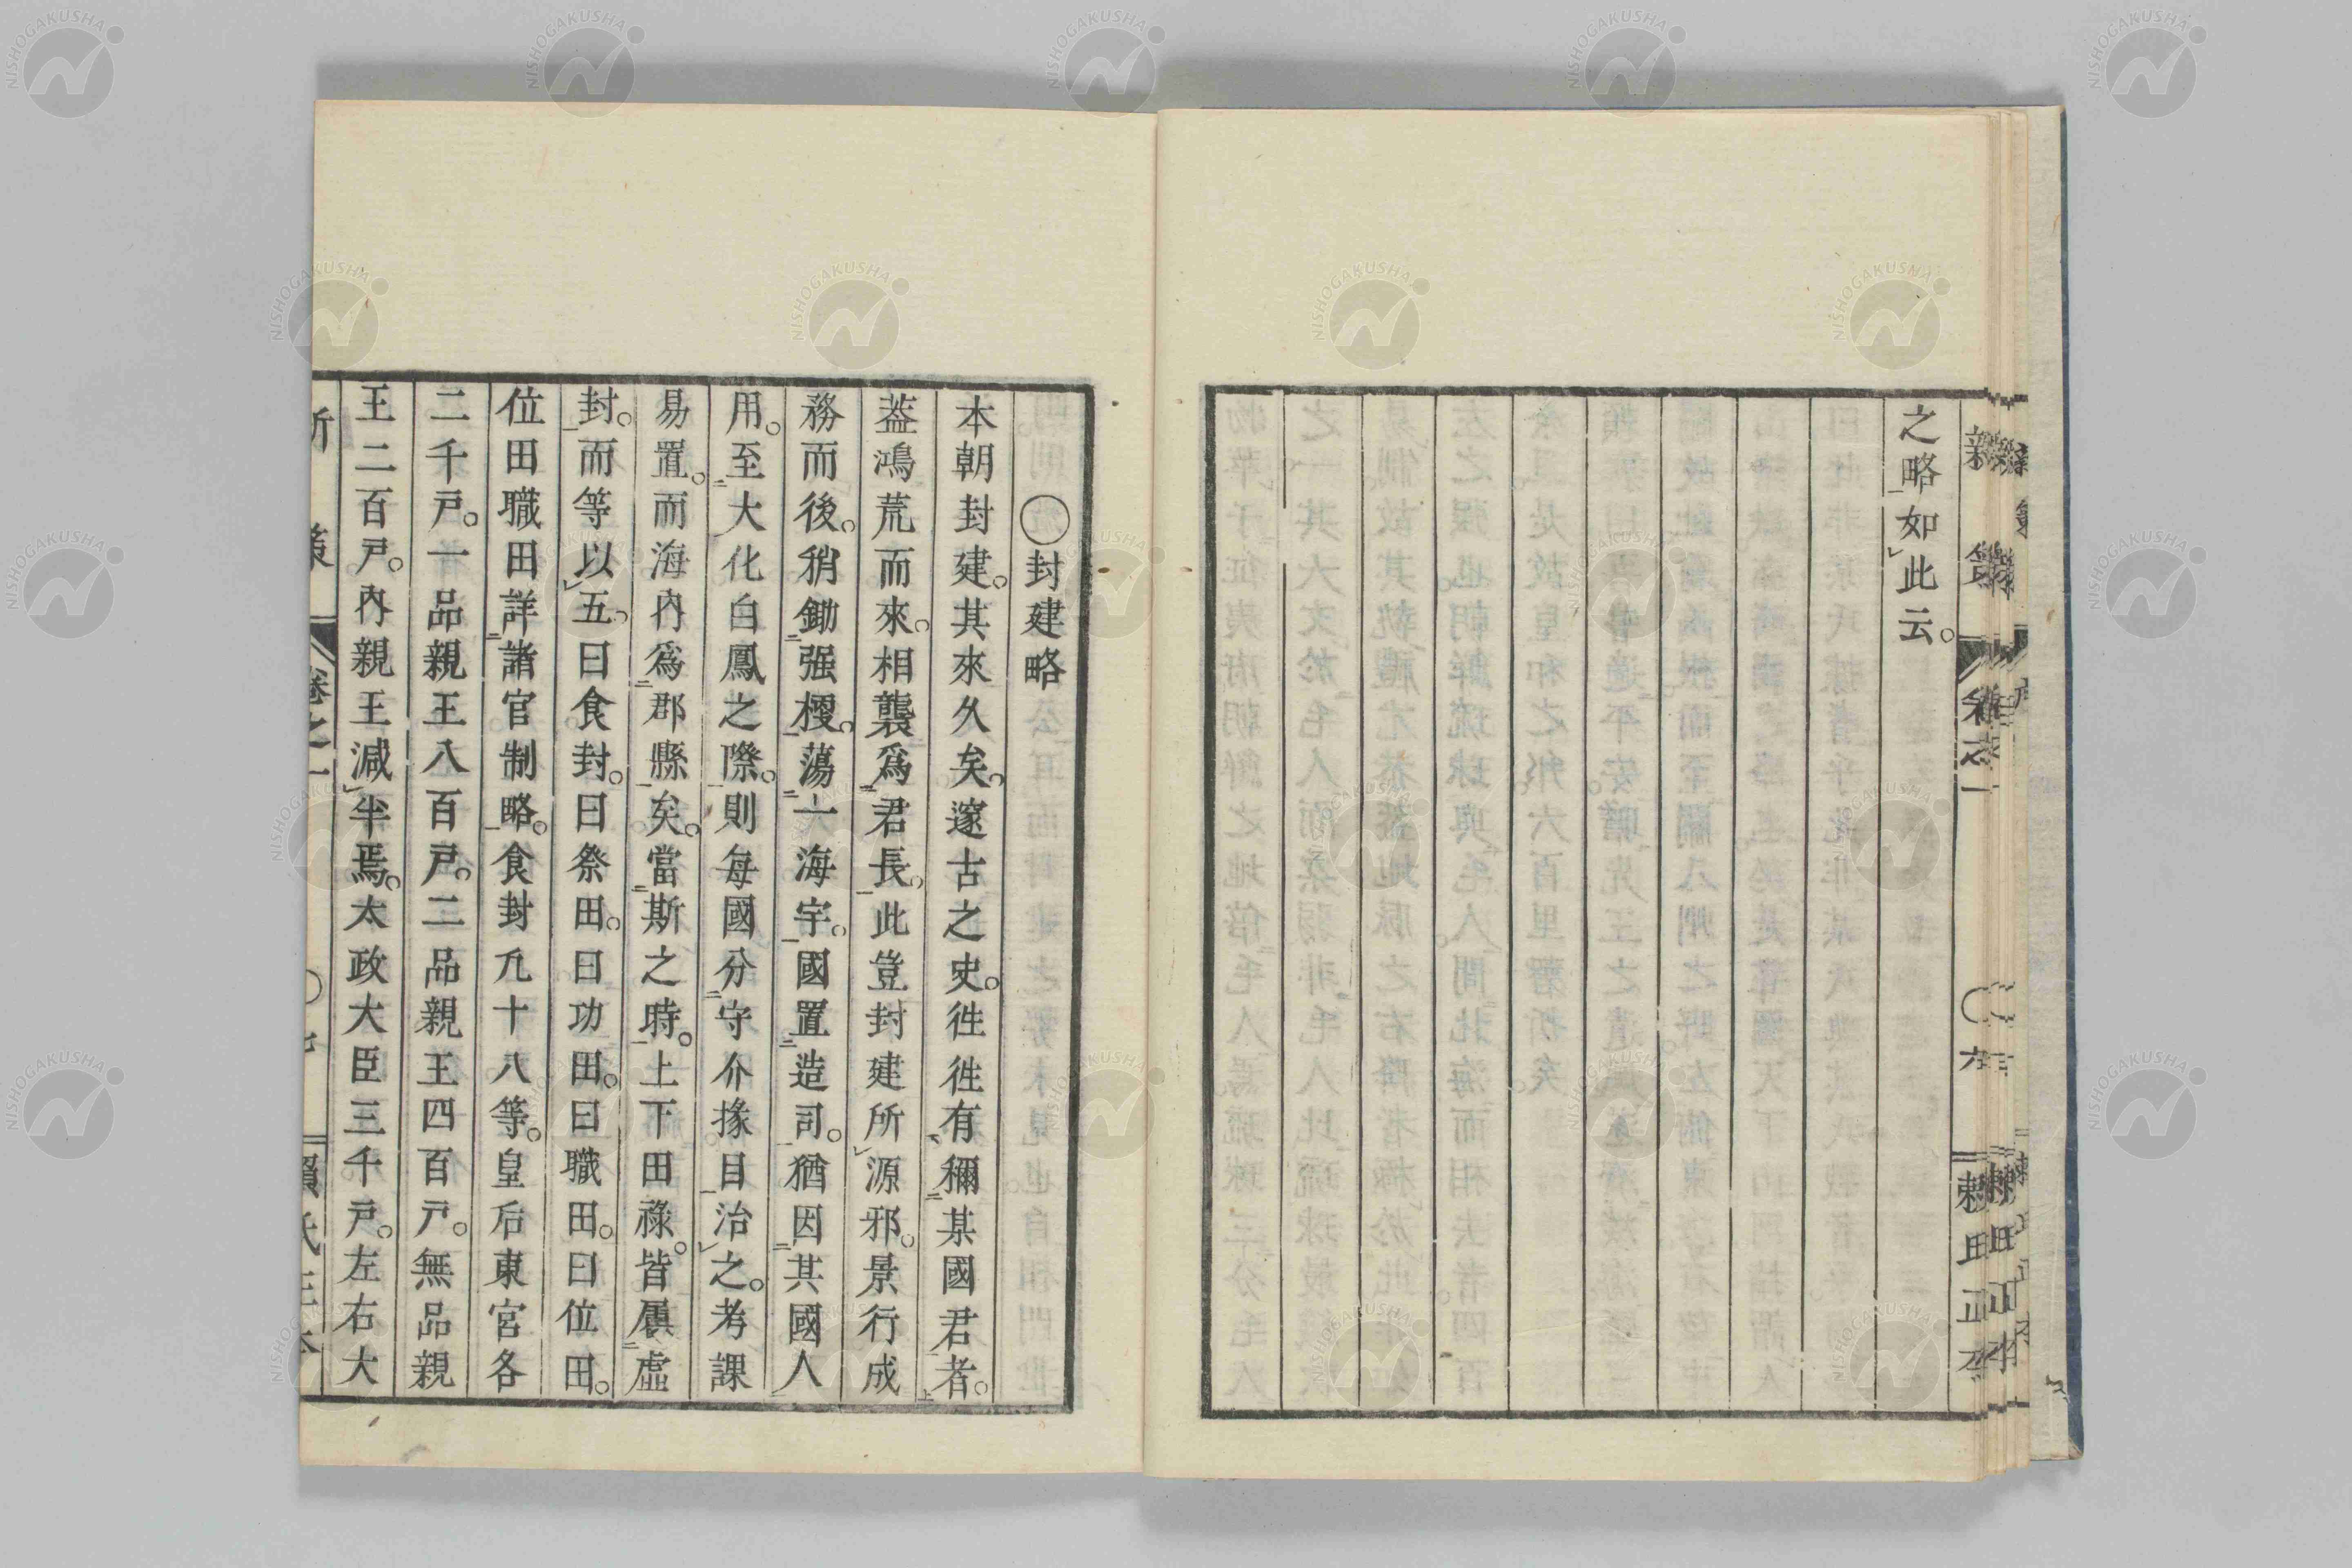 之略如此云。
〇封建略
本朝封建。其來久矣。邃古之史。徃徃有稱某國君者。
葢鴻荒而來。相襲爲君長。此豈封建所源邪。景行成
務而後。稍鋤强梗。蕩一海宇。國置造司。猶因其國人
用。至大化白鳳之際。則每國分守介掾目治之。考課
易置。而海內爲郡縣矣。當斯之時。上下田祿。皆屬虛
封。而等以五。曰食封。曰祭田。曰功田。曰職田。曰位田。
位田職田詳諸官制略。食封凡十八等。皇后東宮各
二千戸。一品親王八百戸。二品親王四百戸。無品親
王二百戸。內親王減半焉。太政大臣三千戸。左右大
NISHOGAKUSHA